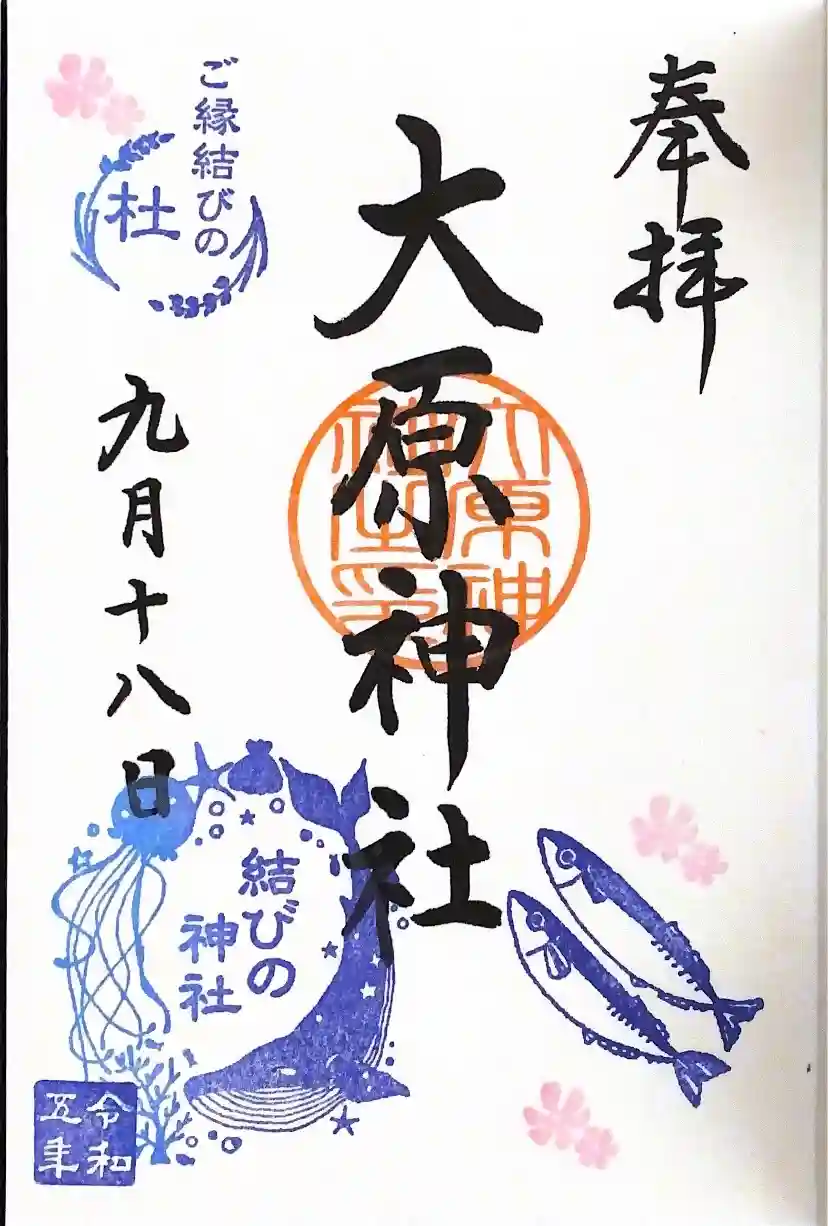 奉拝
大原神社
大原神社之印
九月十八日
ご縁結びの
杜
結びの
神社
令和
五年